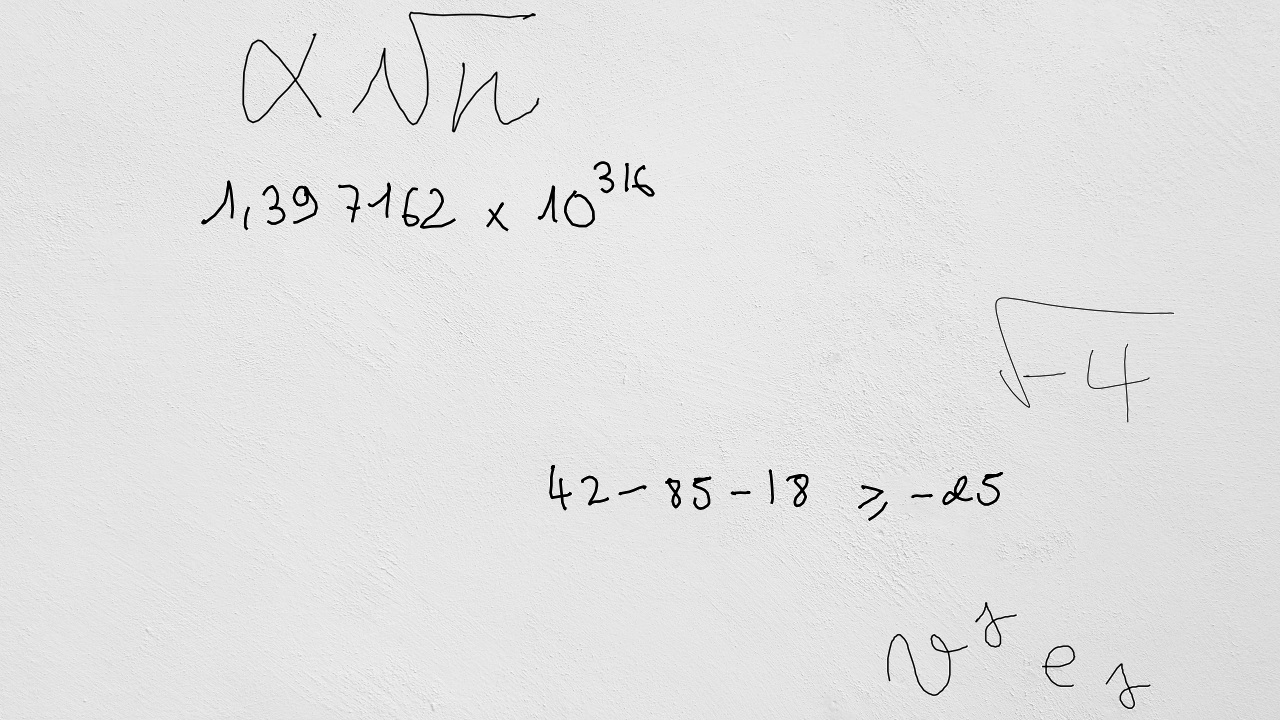 ∝ √n
1,397162 × 10^316
√-4
42 - 85 - 18 ⩾ -25
v^s e_s